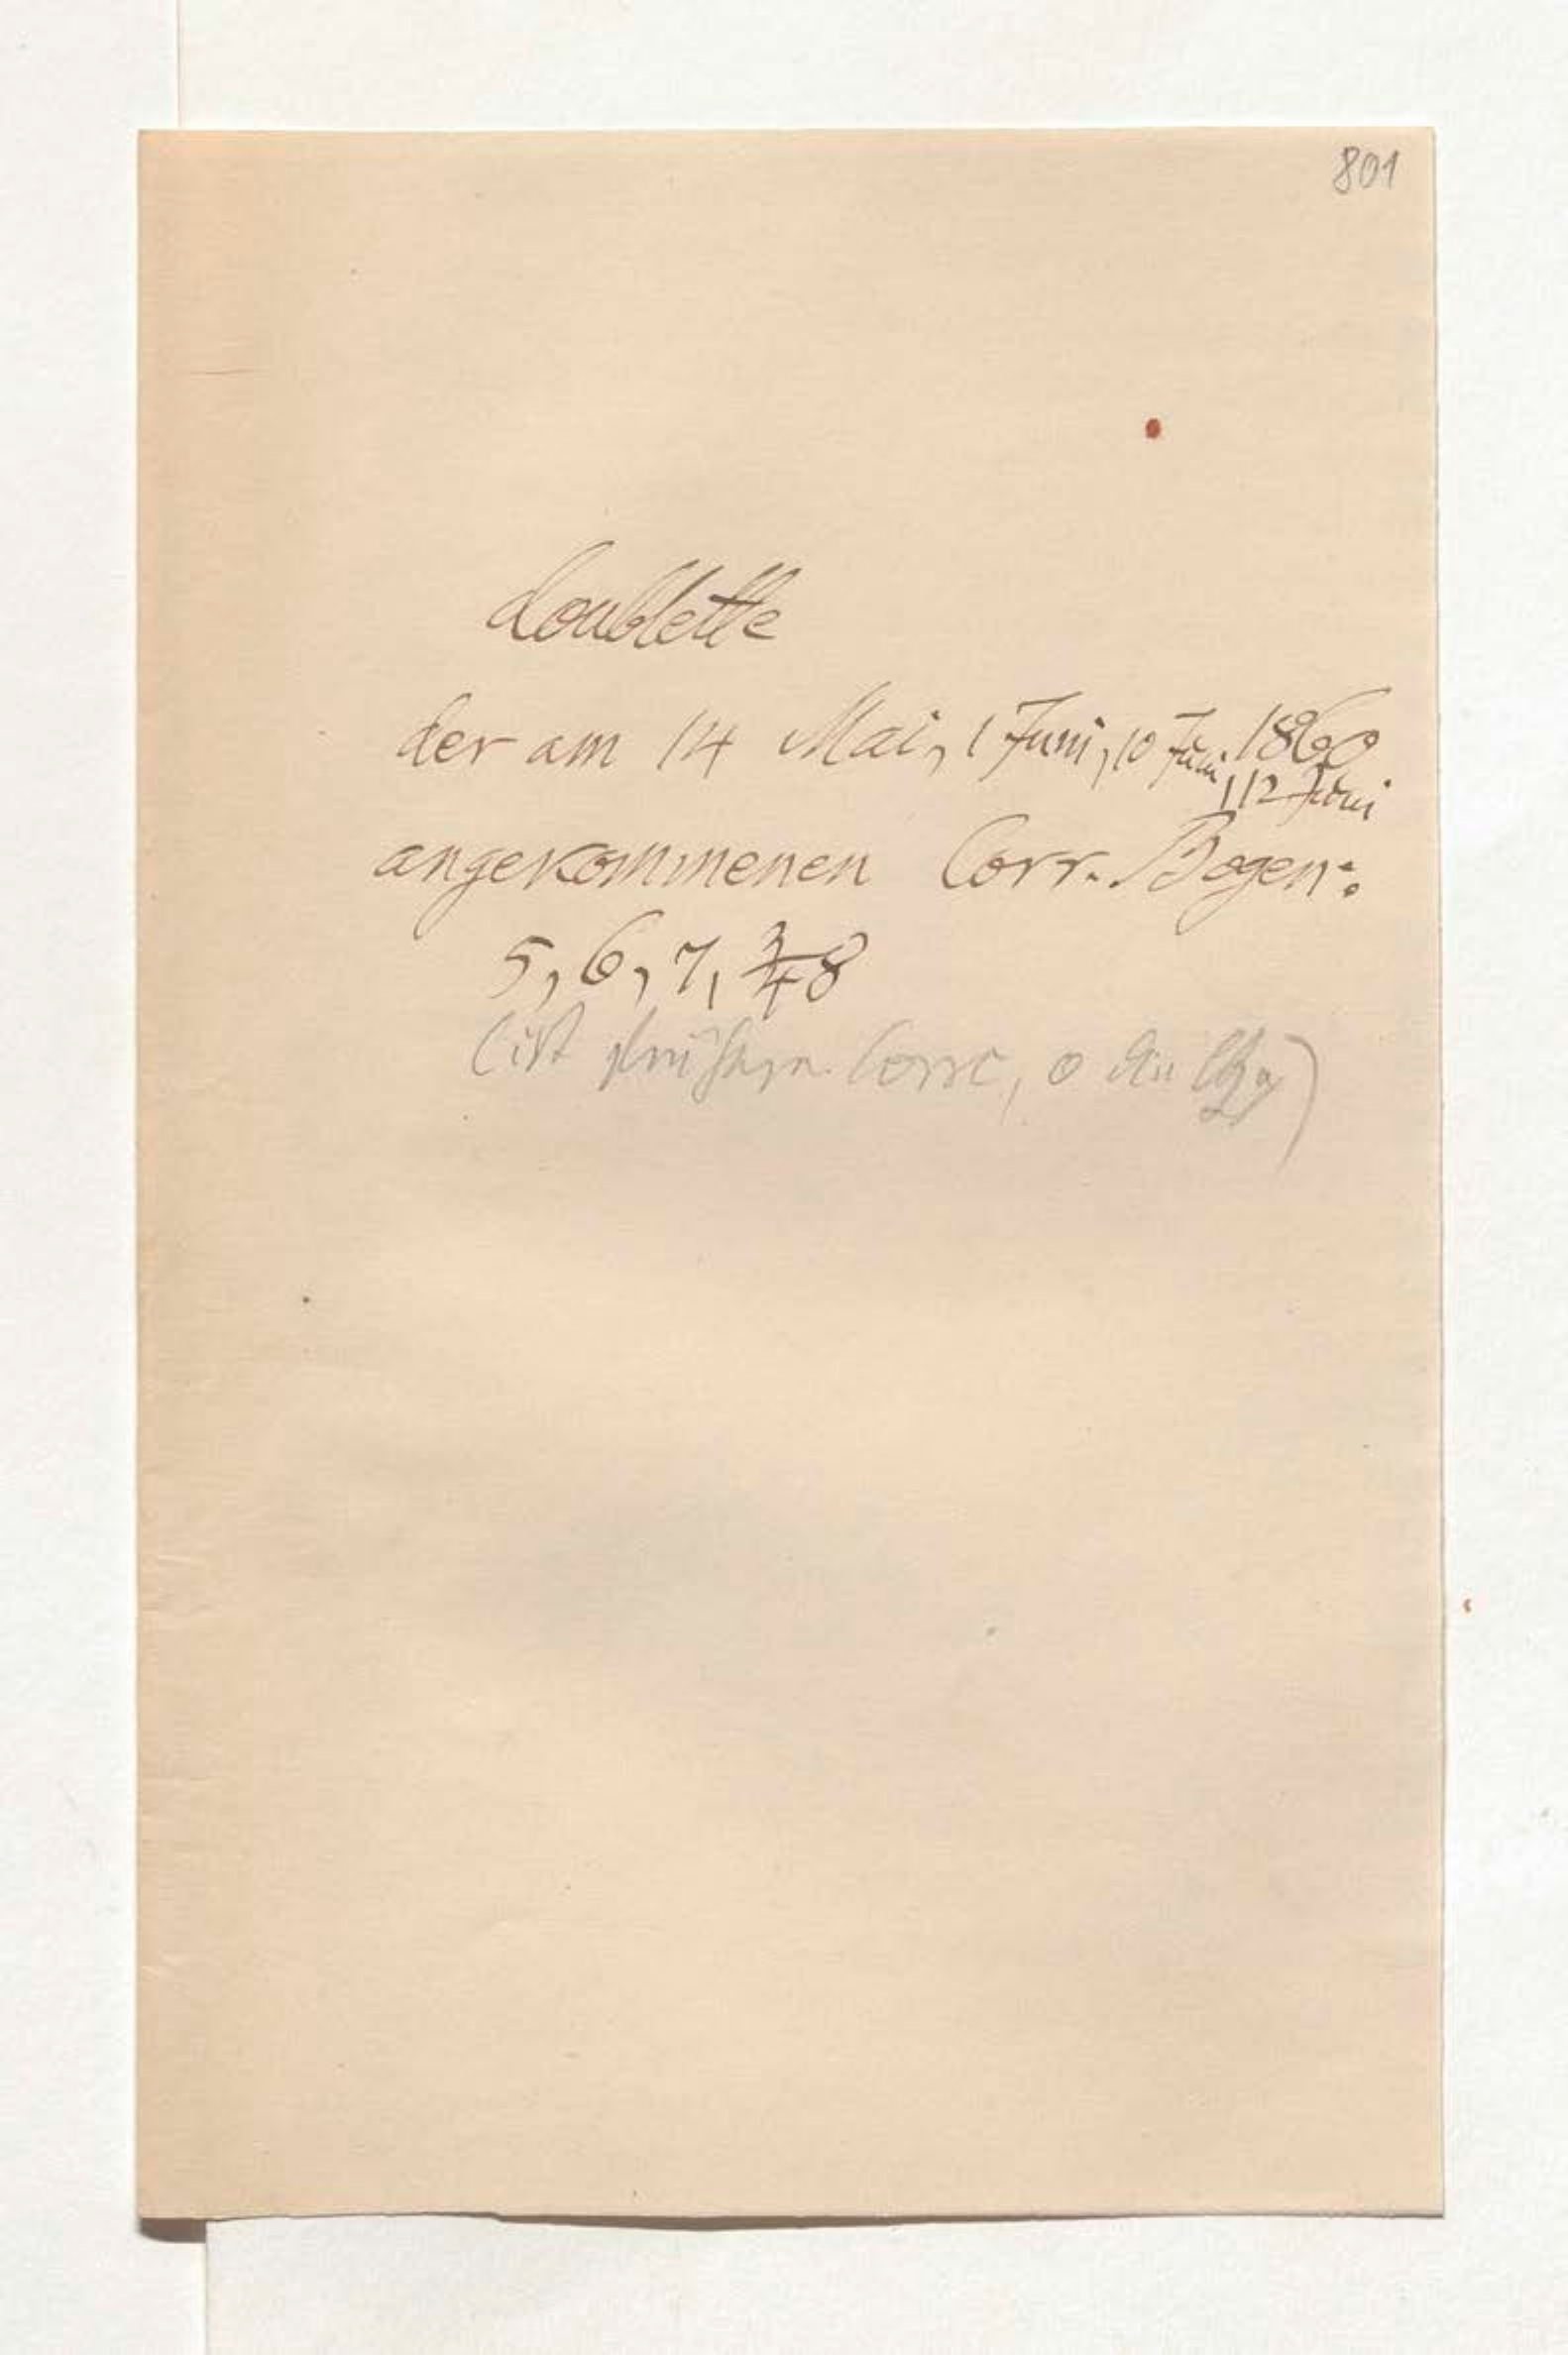 801
Doublette
der am 14 Mai, 1 Juni, 10 Juni 1860
, 12 Juni
angekommenen Corr. Bogen:
5, 6, 7, 3/4 8
(ist Corr,